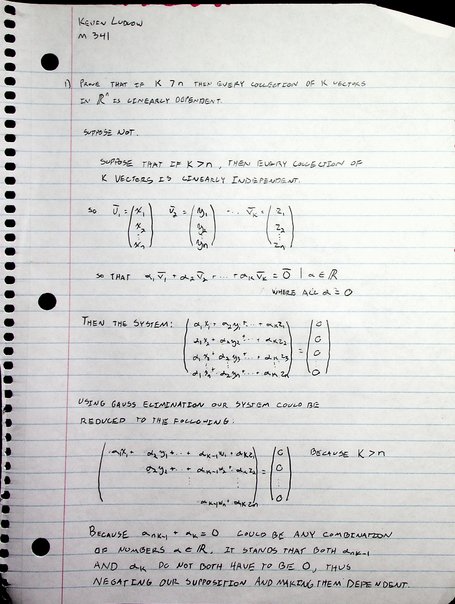 Kevin Ludlow
M 341
1) Prove that if K > n then every collection of K vectors
in ℝⁿ is linearly dependent.
Suppose not.
Suppose that if K > n, then every collection of
K vectors is linearly independent.
so v̄₁ = (x₁ x₂ ⋮ xₙ) v̄₂ = (y₁ y₂ ⋮ yₙ) ... v̄ₖ = (z₁ z₂ ⋮ zₙ)
so that α₁v̄₁ + α₂v̄₂ + ... + αₖv̄ₖ = 0̄ | α ∈ ℝ
where all α = 0
Then the system:
α₁x₁ + α₂y₁ + ... + αₖz₁ = 0
α₁x₂ + α₂y₂ + ... + αₖz₂ = 0
α₁x₃ + α₂y₃ + ... + αₖz₃ = 0
α₁xₙ + α₂yₙ + ... + αₖzₙ = 0
Using Gauss elimination our system could be
reduced to the following:
α₁x₁ + α₂y₁ + ... + αₖ₋₁w₁ + αₖz₁ = 0 because K > n
α₂y₂ + ... + αₖ₋₁w₂ + αₖz₂ = 0
⋮ ⋮
αₖ₋₁wₙ + αₖzₙ = 0
Because + αₖ = 0 could be any combination
of numbers α ∈ ℝ, it stands that both
and αₖ do not both have to be 0, thus
negating our supposition and making them dependent.